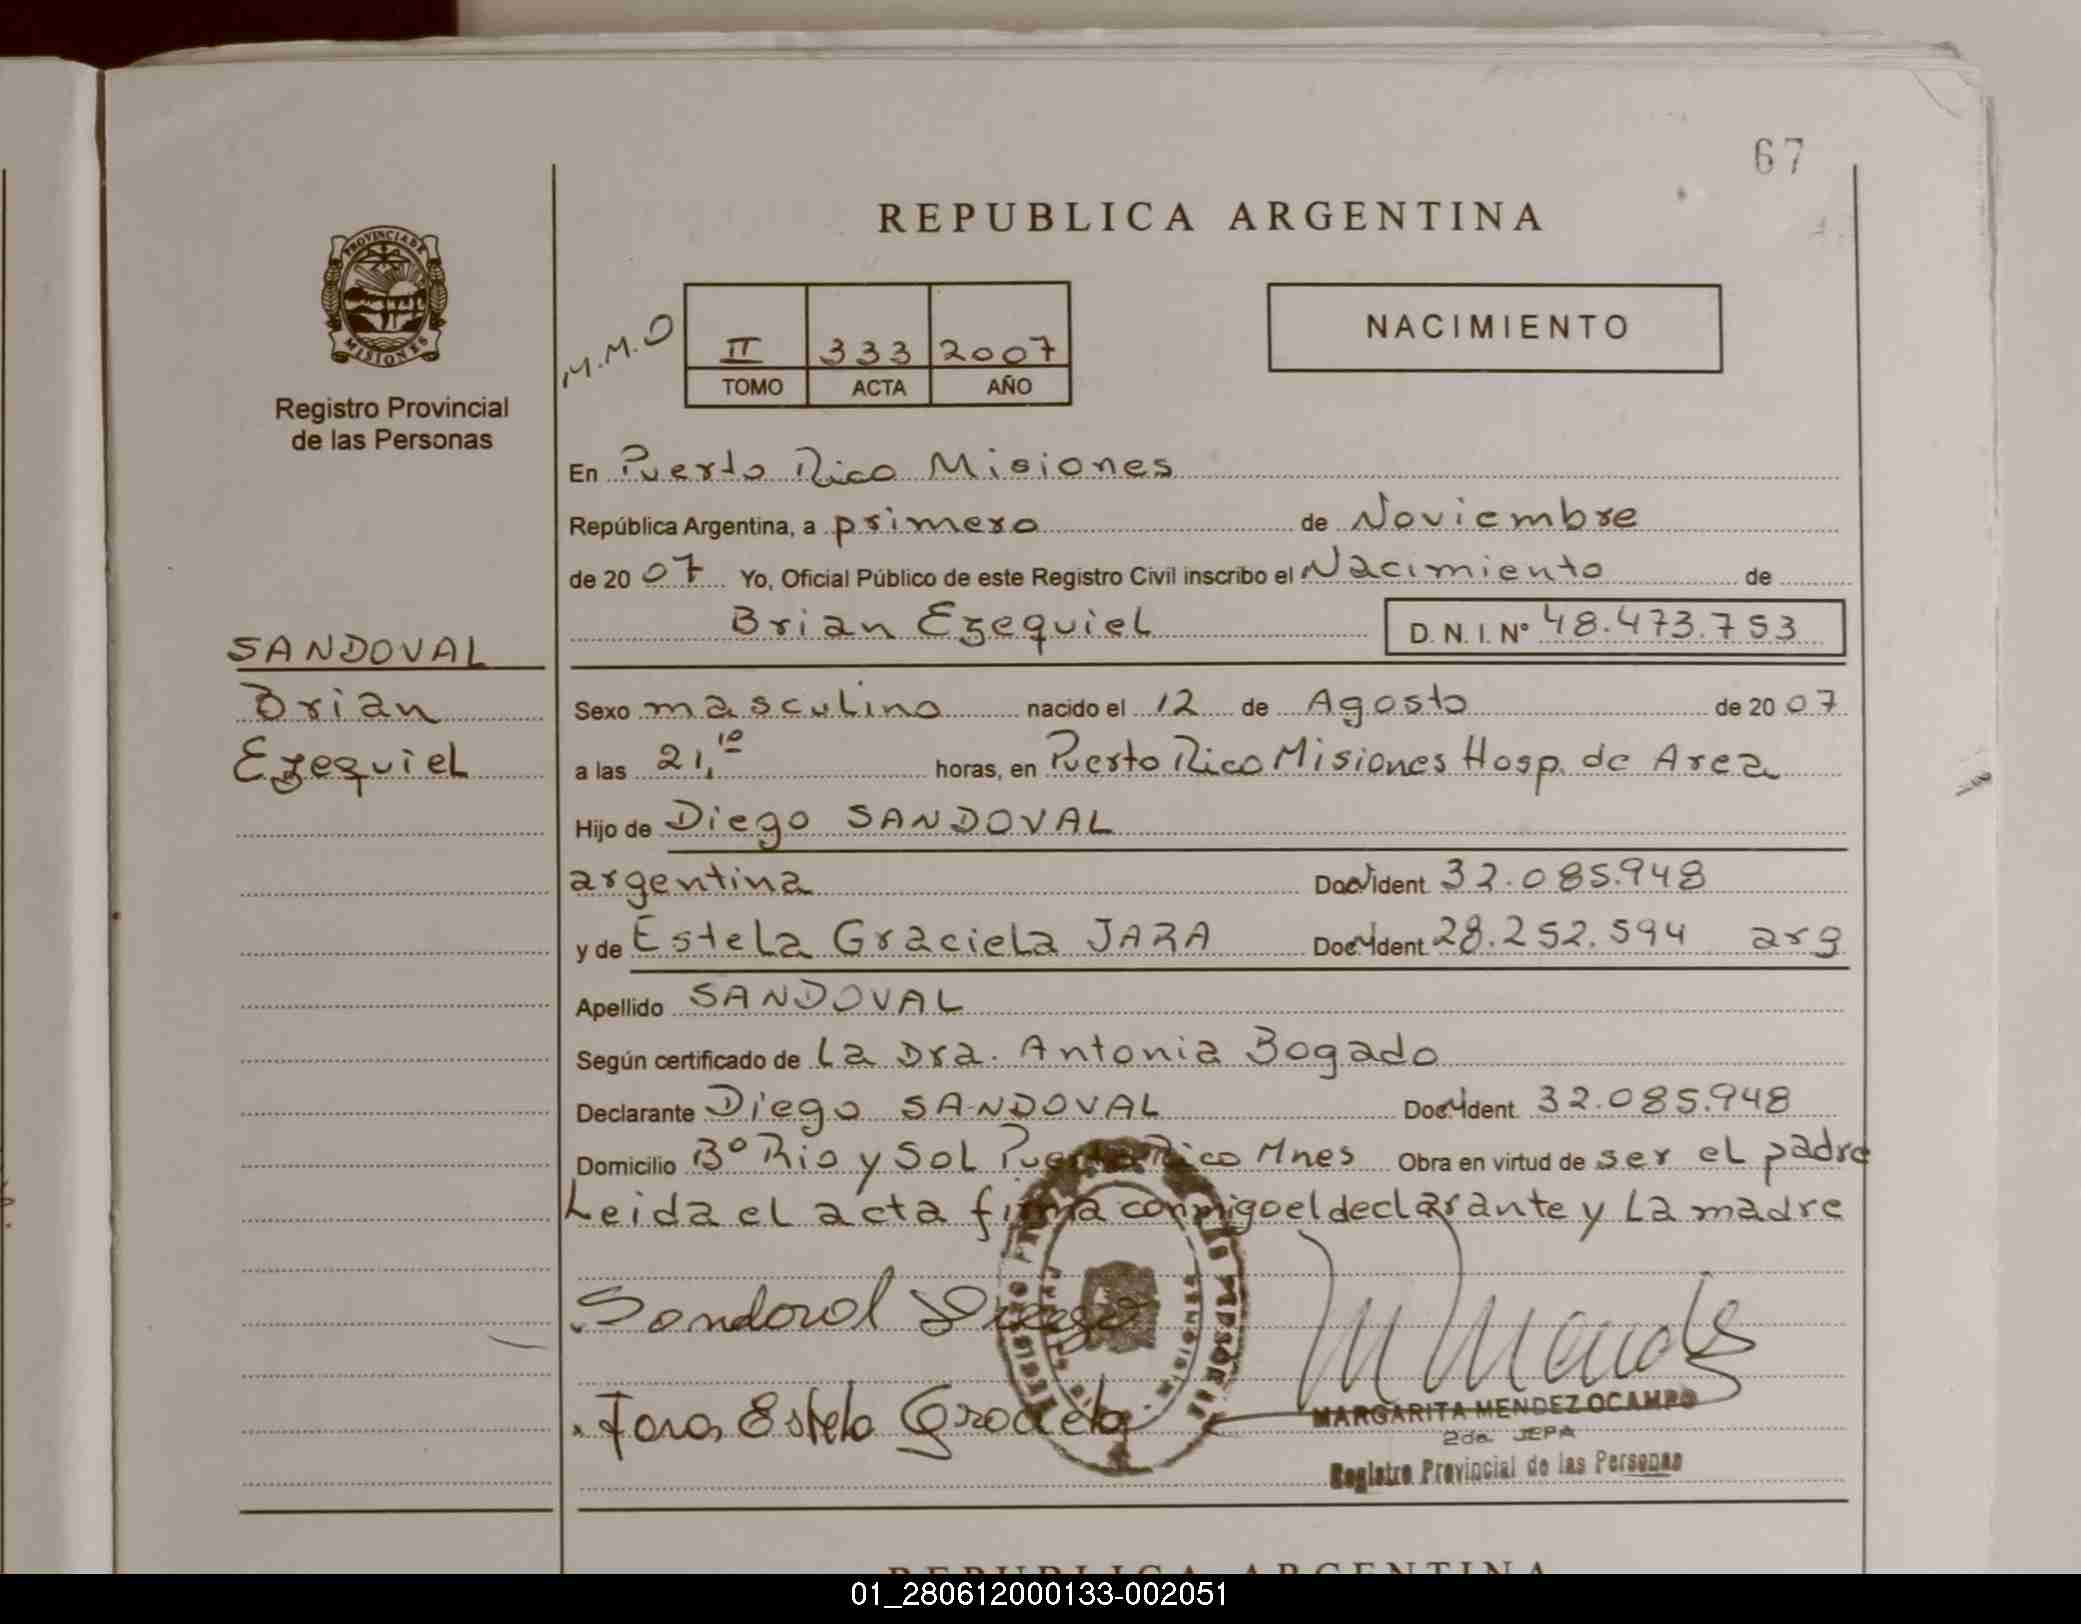 67
REPUBLICA ARGENTINA
PROVINCIA DE
MISIONES
Registro Provincial
de las Personas
M.M.O
II 333 2007
TOMO ACTA AÑO
NACIMIENTO
En Puerto Rico Misiones
República Argentina, a primero de Noviembre
de 20 07 Yo, Oficial Público de este Registro Civil inscribo el Nacimiento de
Brian Ezequiel D. N. I. Nº 48.473.753
SANDOVAL
Brian
Ezequiel
Sexo masculino nacido el 12 de Agosto de 20 07
a las 21,10 horas, en Puerto Rico Misiones Hosp. de Area
Hijo de Diego SANDOVAL
argentina Doc. Ident. 32.085.948
y de Estela Graciela JARA Doc. Ident. 28.252.594 arg
Apellido SANDOVAL
Según certificado de La Dra. Antonia Bogado
Declarante Diego SANDOVAL Doc. Ident. 32.085.948
Domicilio Bº Rio y Sol Puerto Rico Mnes Obra en virtud de ser el padre
Leida el acta firma conmigo el declarante y La madre
Sandoval Diego
Jara Estela Graciela
MARGARITA MENDEZ OCAMPO
2da. JEFA
Registro Provincial de las Personas
REPUBLICA ARGENTINA
01_280612000133-002051